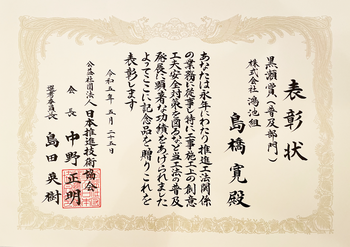 表彰状
黒瀬賞(普及部門)
株式会社 鴻池組
島橋 寛 殿
あなたは永年にわたり推進工法関係
の業務に従事し特に工事施工上の創意
工夫安全対策を図るなど当工法の普及
発展に顕著な功績をあげられました
よってここに記念品を贈りこれを
表彰します
令和五年五月二十五日
公益社団法人 日本推進技術協会
会長 中野正明
選考委員長 島田英樹